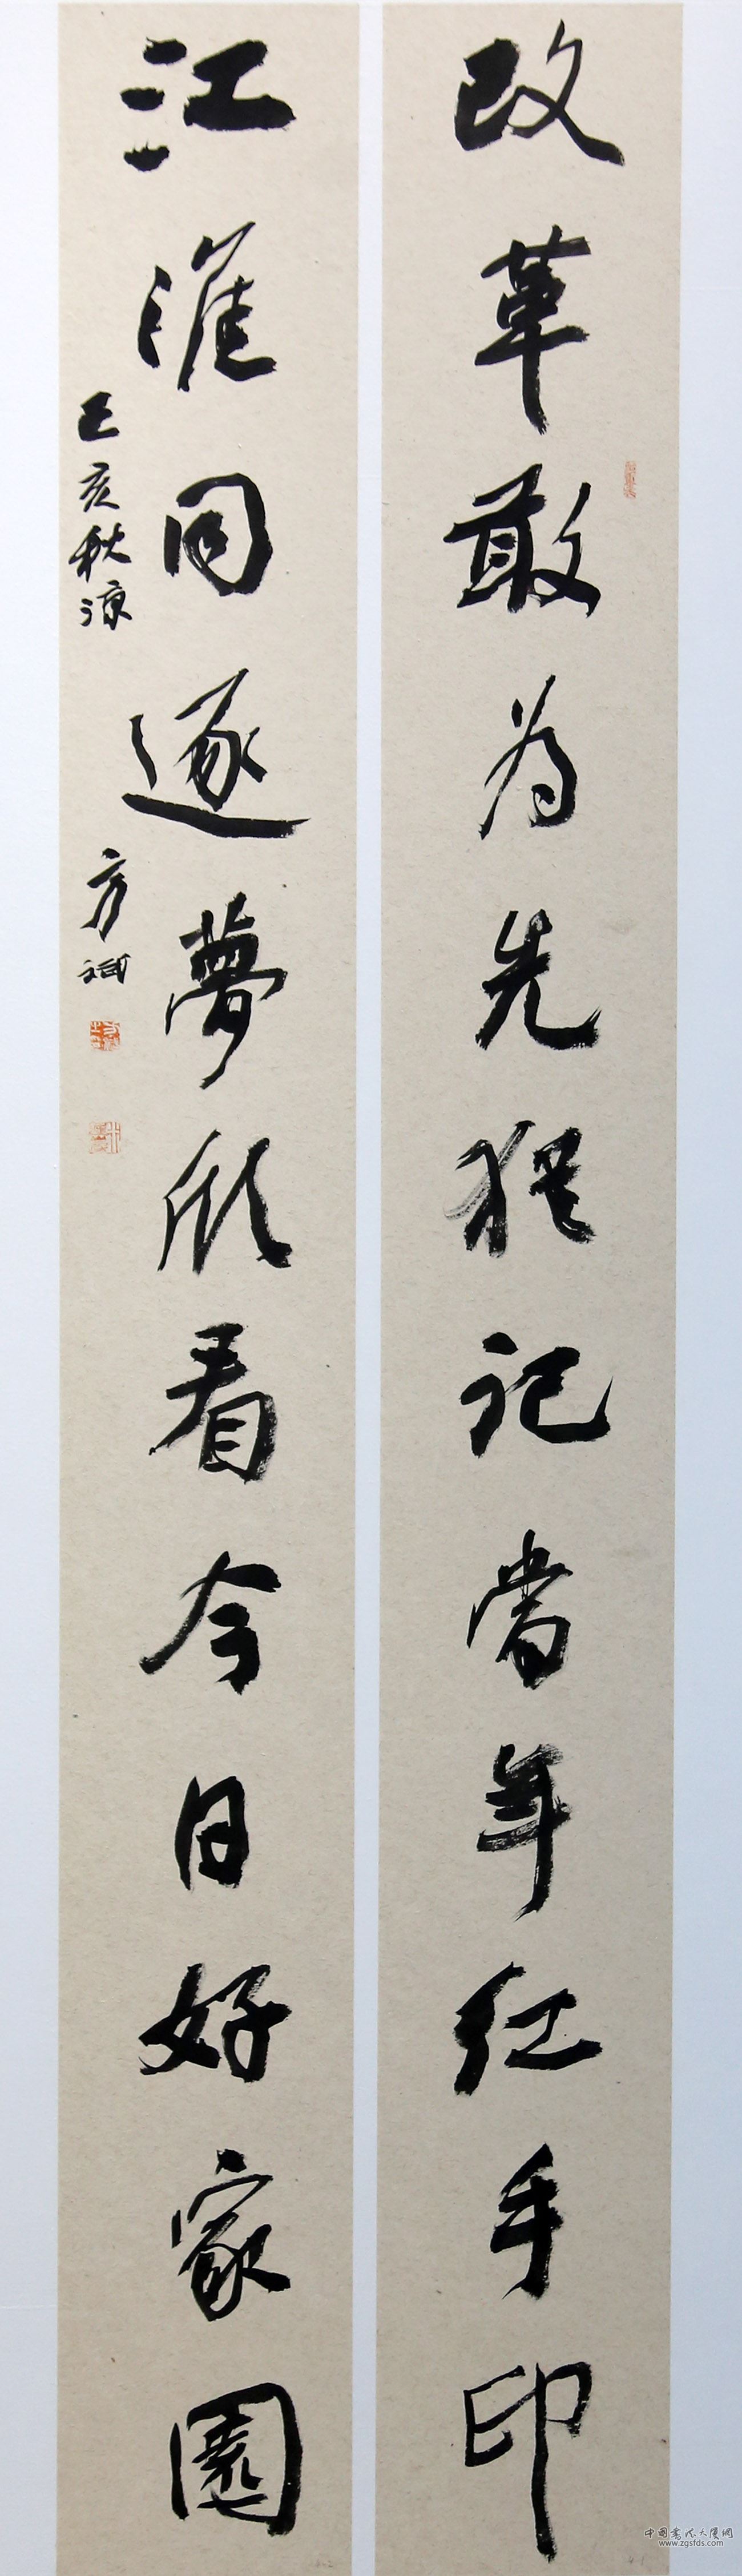 改革敢为先犹记当年红手印
江淮同逐夢欣看今日好家園
己亥秋凉
方斌
中国书法大厦网
www.zgsfds.com